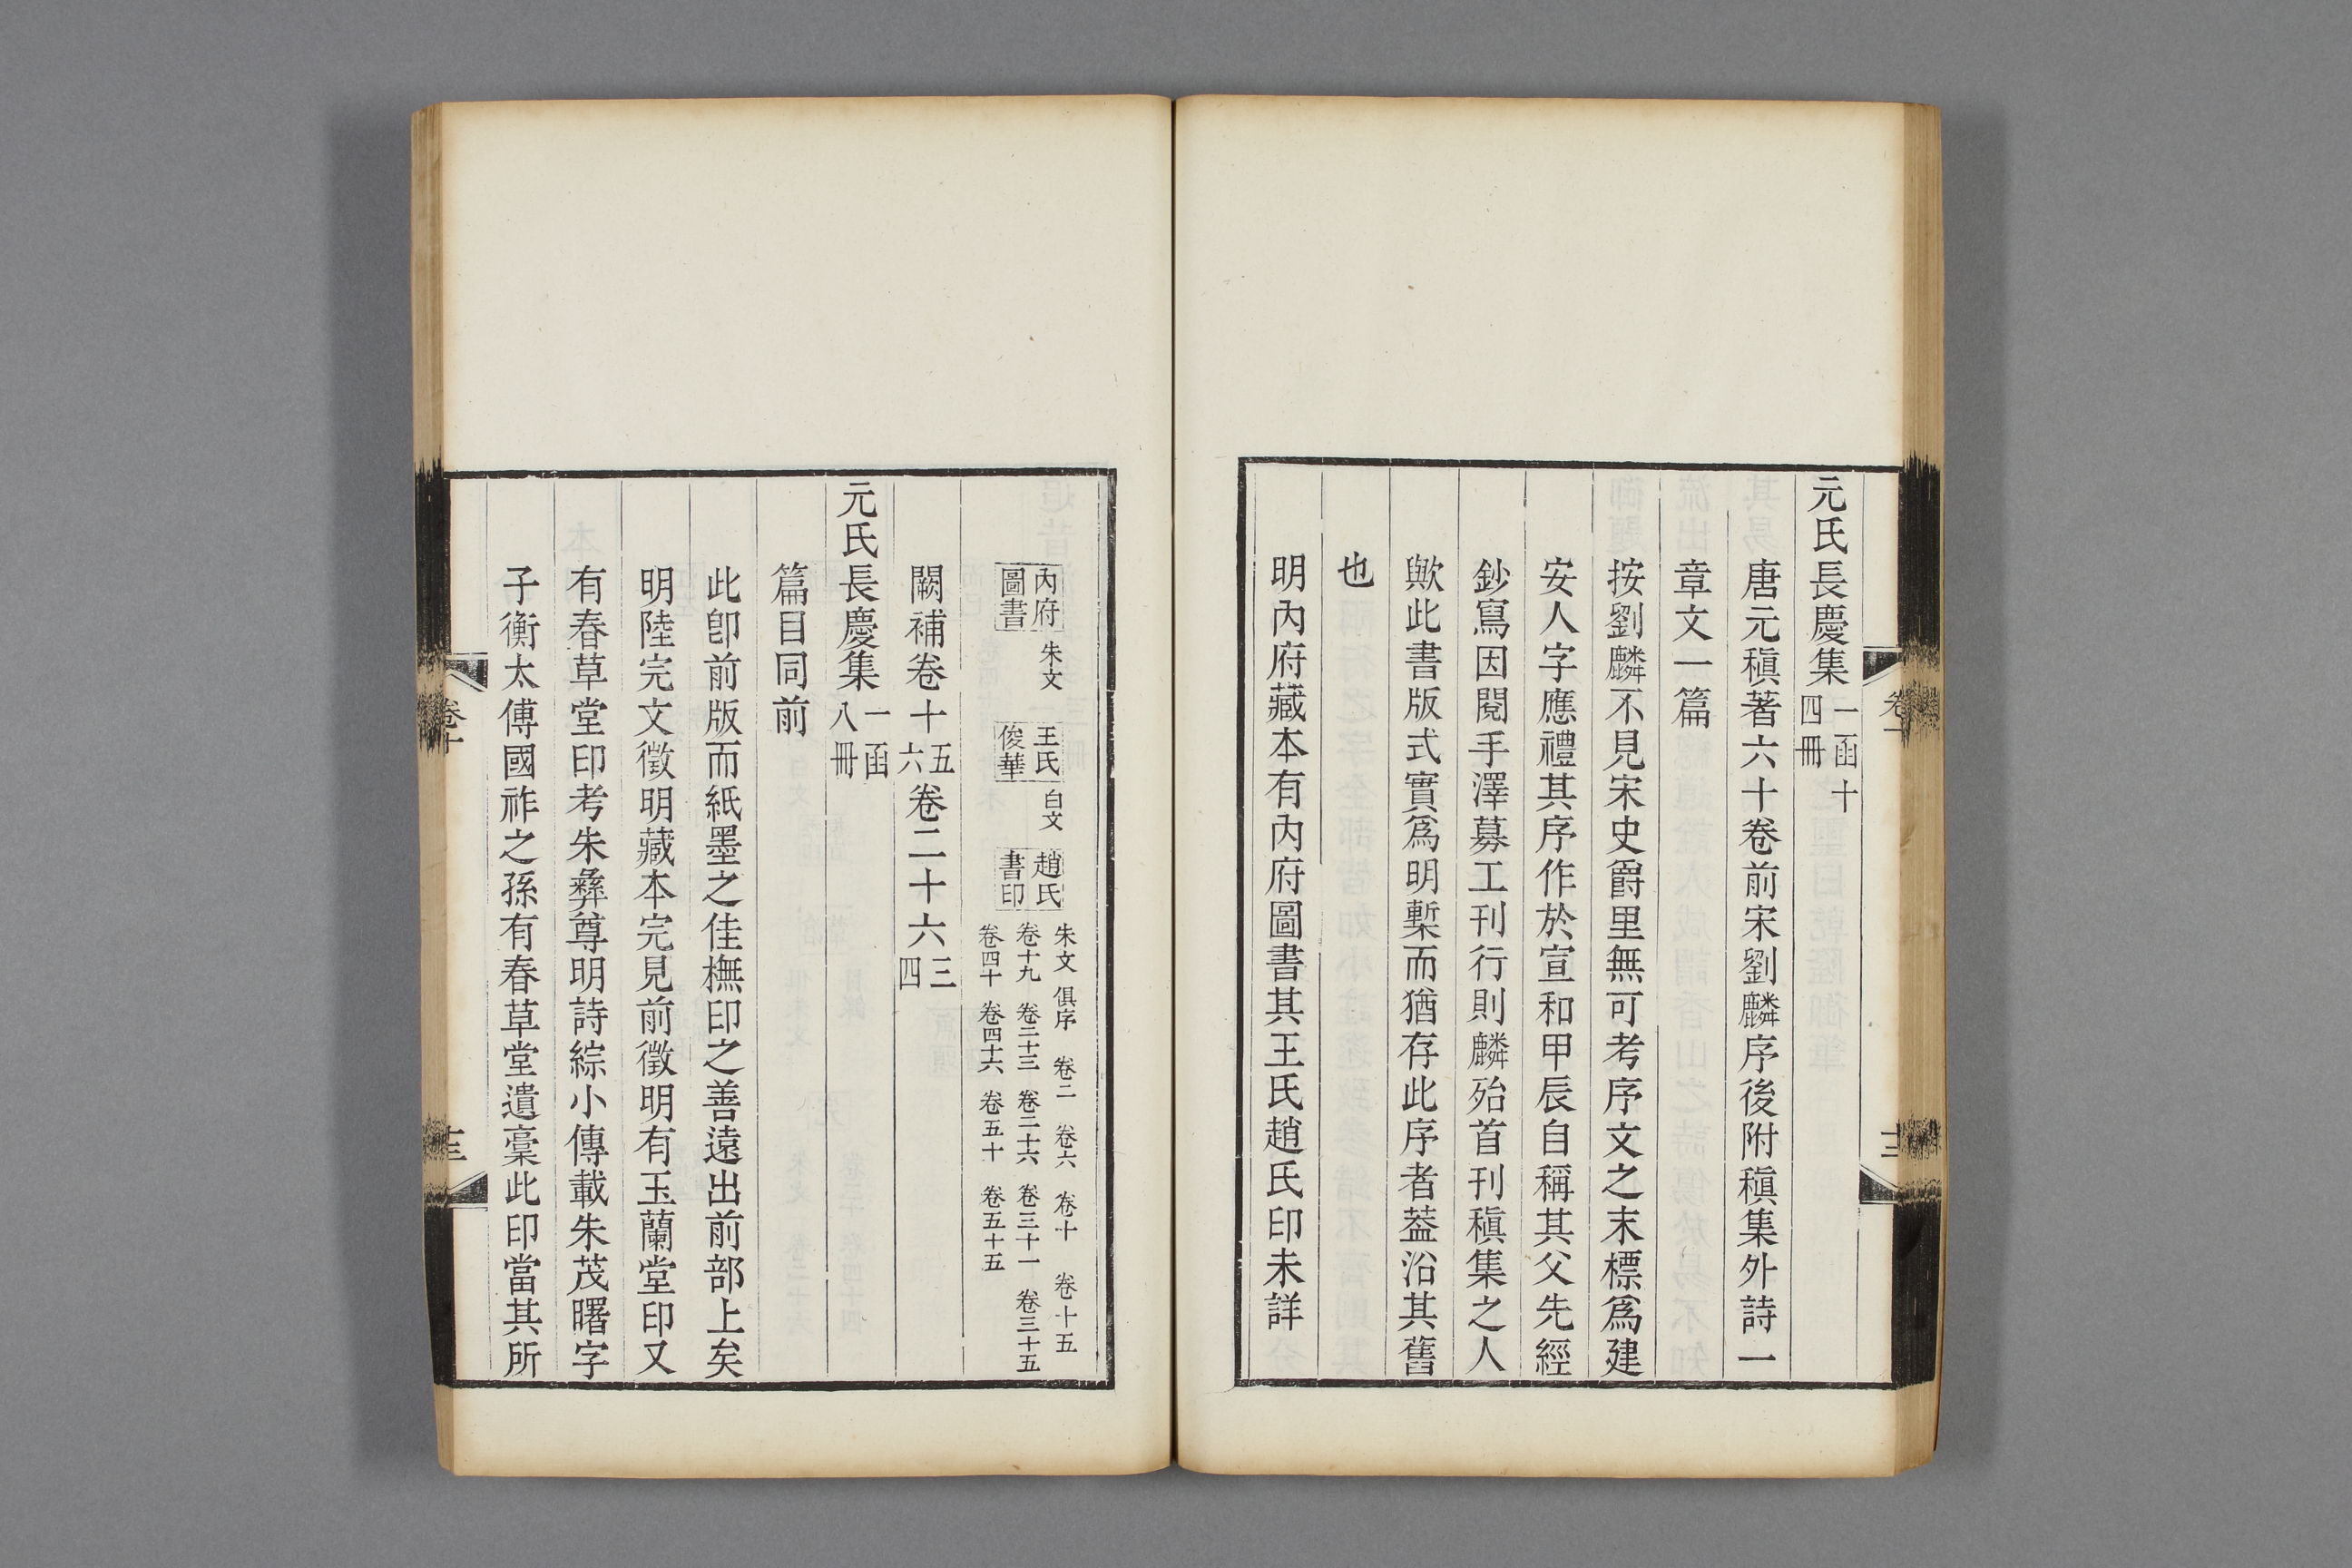 元氏長慶集一函十四冊
唐元稹著六十卷前宋劉麟序後附稹集外詩一
章文一篇
按劉麟不見宋史爵里無可考序文之末標爲建
安人字應禮其序作於宣和甲辰自稱其父先經
鈔寫因閱手澤募工刊行則麟殆首刊稹集之人
歟此書版式實爲明槧而猶存此序者葢沿其舊
也
明內府藏本有內府圖書其王氏趙氏印未詳
內府圖書 朱文 王氏俊華 白文 趙氏書印 朱文 俱序 卷二 卷六 卷十 卷十五 卷十九 卷二十三 卷二十六 卷三十一 卷三十五 卷四十 卷四十六 卷五十 卷五十五
闕補卷十五六卷二十六三四
元氏長慶集一函八冊
篇目同前
此卽前版而紙墨之佳橅印之善遠出前部上矣
明陸完文徵明藏本完見前徵明有玉蘭堂印又
有春草堂印考朱彝尊明詩綜小傳載朱茂曙字
子衡太傅國祚之孫有春草堂遺稾此印當其所
卷十
十三